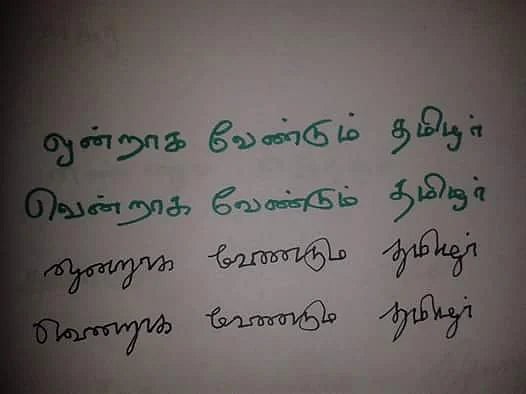 ஒன்றாக வேண்டும் தமிழர்
வென்றாக வேண்டும் தமிழர்
ஒன்றாக வேண்டும் தமிழர்
வென்றாக வேண்டும் தமிழர்